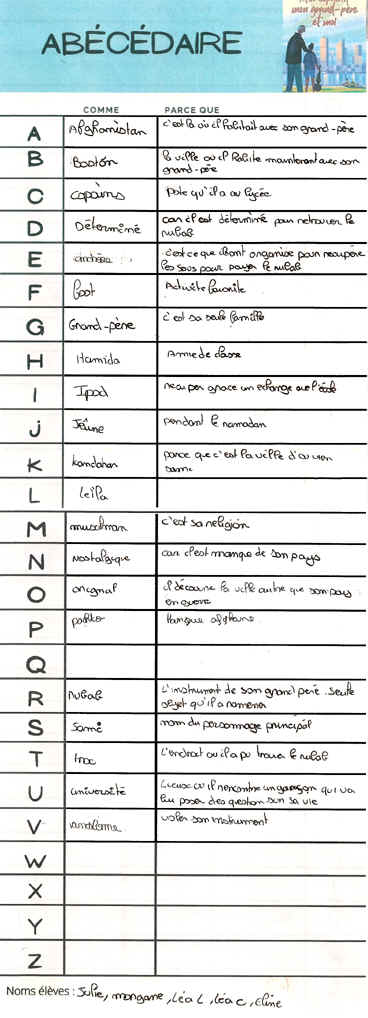 mon grand-père
et moi
ABÉCÉDAIRE
COMME PARCE QUE
A Afghanistan c'est là où il habitait avec son grand-père
B Boston la ville où il habite maintenant avec son
grand-père
C copains Pote qu'il a au lycée
D Déterminé car il est déterminé pour retrouver le
rubab
E enchère c'est ce que dont organise pour recupère
les sous pour payer le rubab
F foot Activité favorite
G Grand-père c'est sa seule famille
H Hamida Amie de classe
I Ipod recuper grace un echange avec l'école
J Jeûne pendant le ramadan
K kandahar parce que c'est la ville d'ou vien
sami
L leila
M musulman c'est sa religion
N Nostalgique car il est manque de son pays
O original il découvre la ville autre que son pays
en guerre
P pashto langue afghane
Q
R Rubab L'instrument de son grand père. Seule
objet qu'il a ramener
S Sami nom du personnage principal
T troc L'endroit ou il a pu trouver le rubab
U université Lieux où il rencontre un garçon qui va
lui poser des question sur sa vie
V voler son instrument
W
X
Y
Z
Noms élèves : Julie, morgane, Léa L, Léa C, Eline